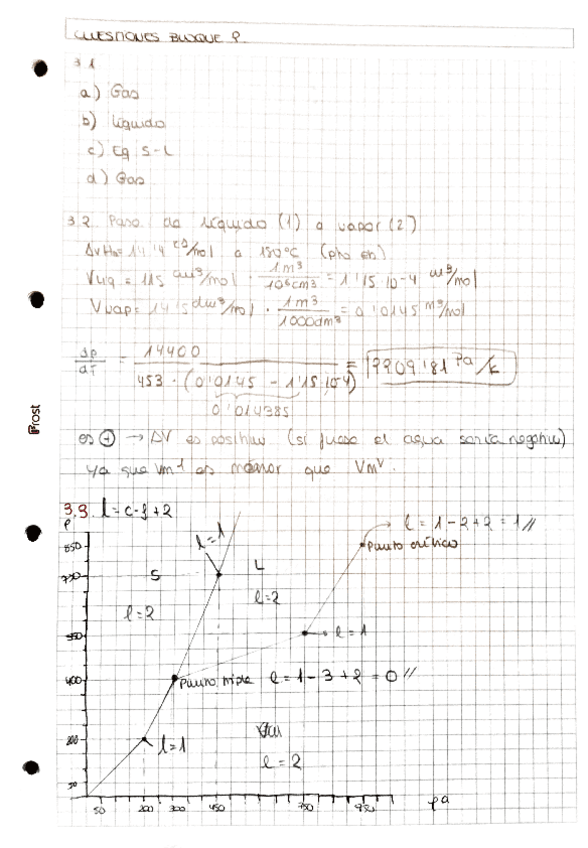 CUESTIONES BLOQUE
3.1
a) Gas
b) Líquido
c) Eq S-L
d) Gas
3.2 Paso de líquido (1) a vapor (2)
a 180°C
Vliq = 115 cm³/mol · 1 m³ / 10⁶cm³ = 1'15·10-4 m³/mol
Vvap = 14'5 dm³/mol · 1 m³ / 1000dm³ = 0'0145 m³/mol
dp/dT = 14400 / 453 · (0'0145 - 1'15·10-4) = 2209'81 Pa/k
0'014385
es + → ΔV es positivo (si fuese el agua seria negativo)
ya que Vm¹ es menor que Vmv.
3.3. l = c-f+2
P
l=1
l = 1-2+2 = 1//
Punto crítico
S
L
l=2
l=2
l=1
400
Punto triple l = 1-3+2 = 0//
200
l=1
l=2
50
50 200 300 450 750
Prost